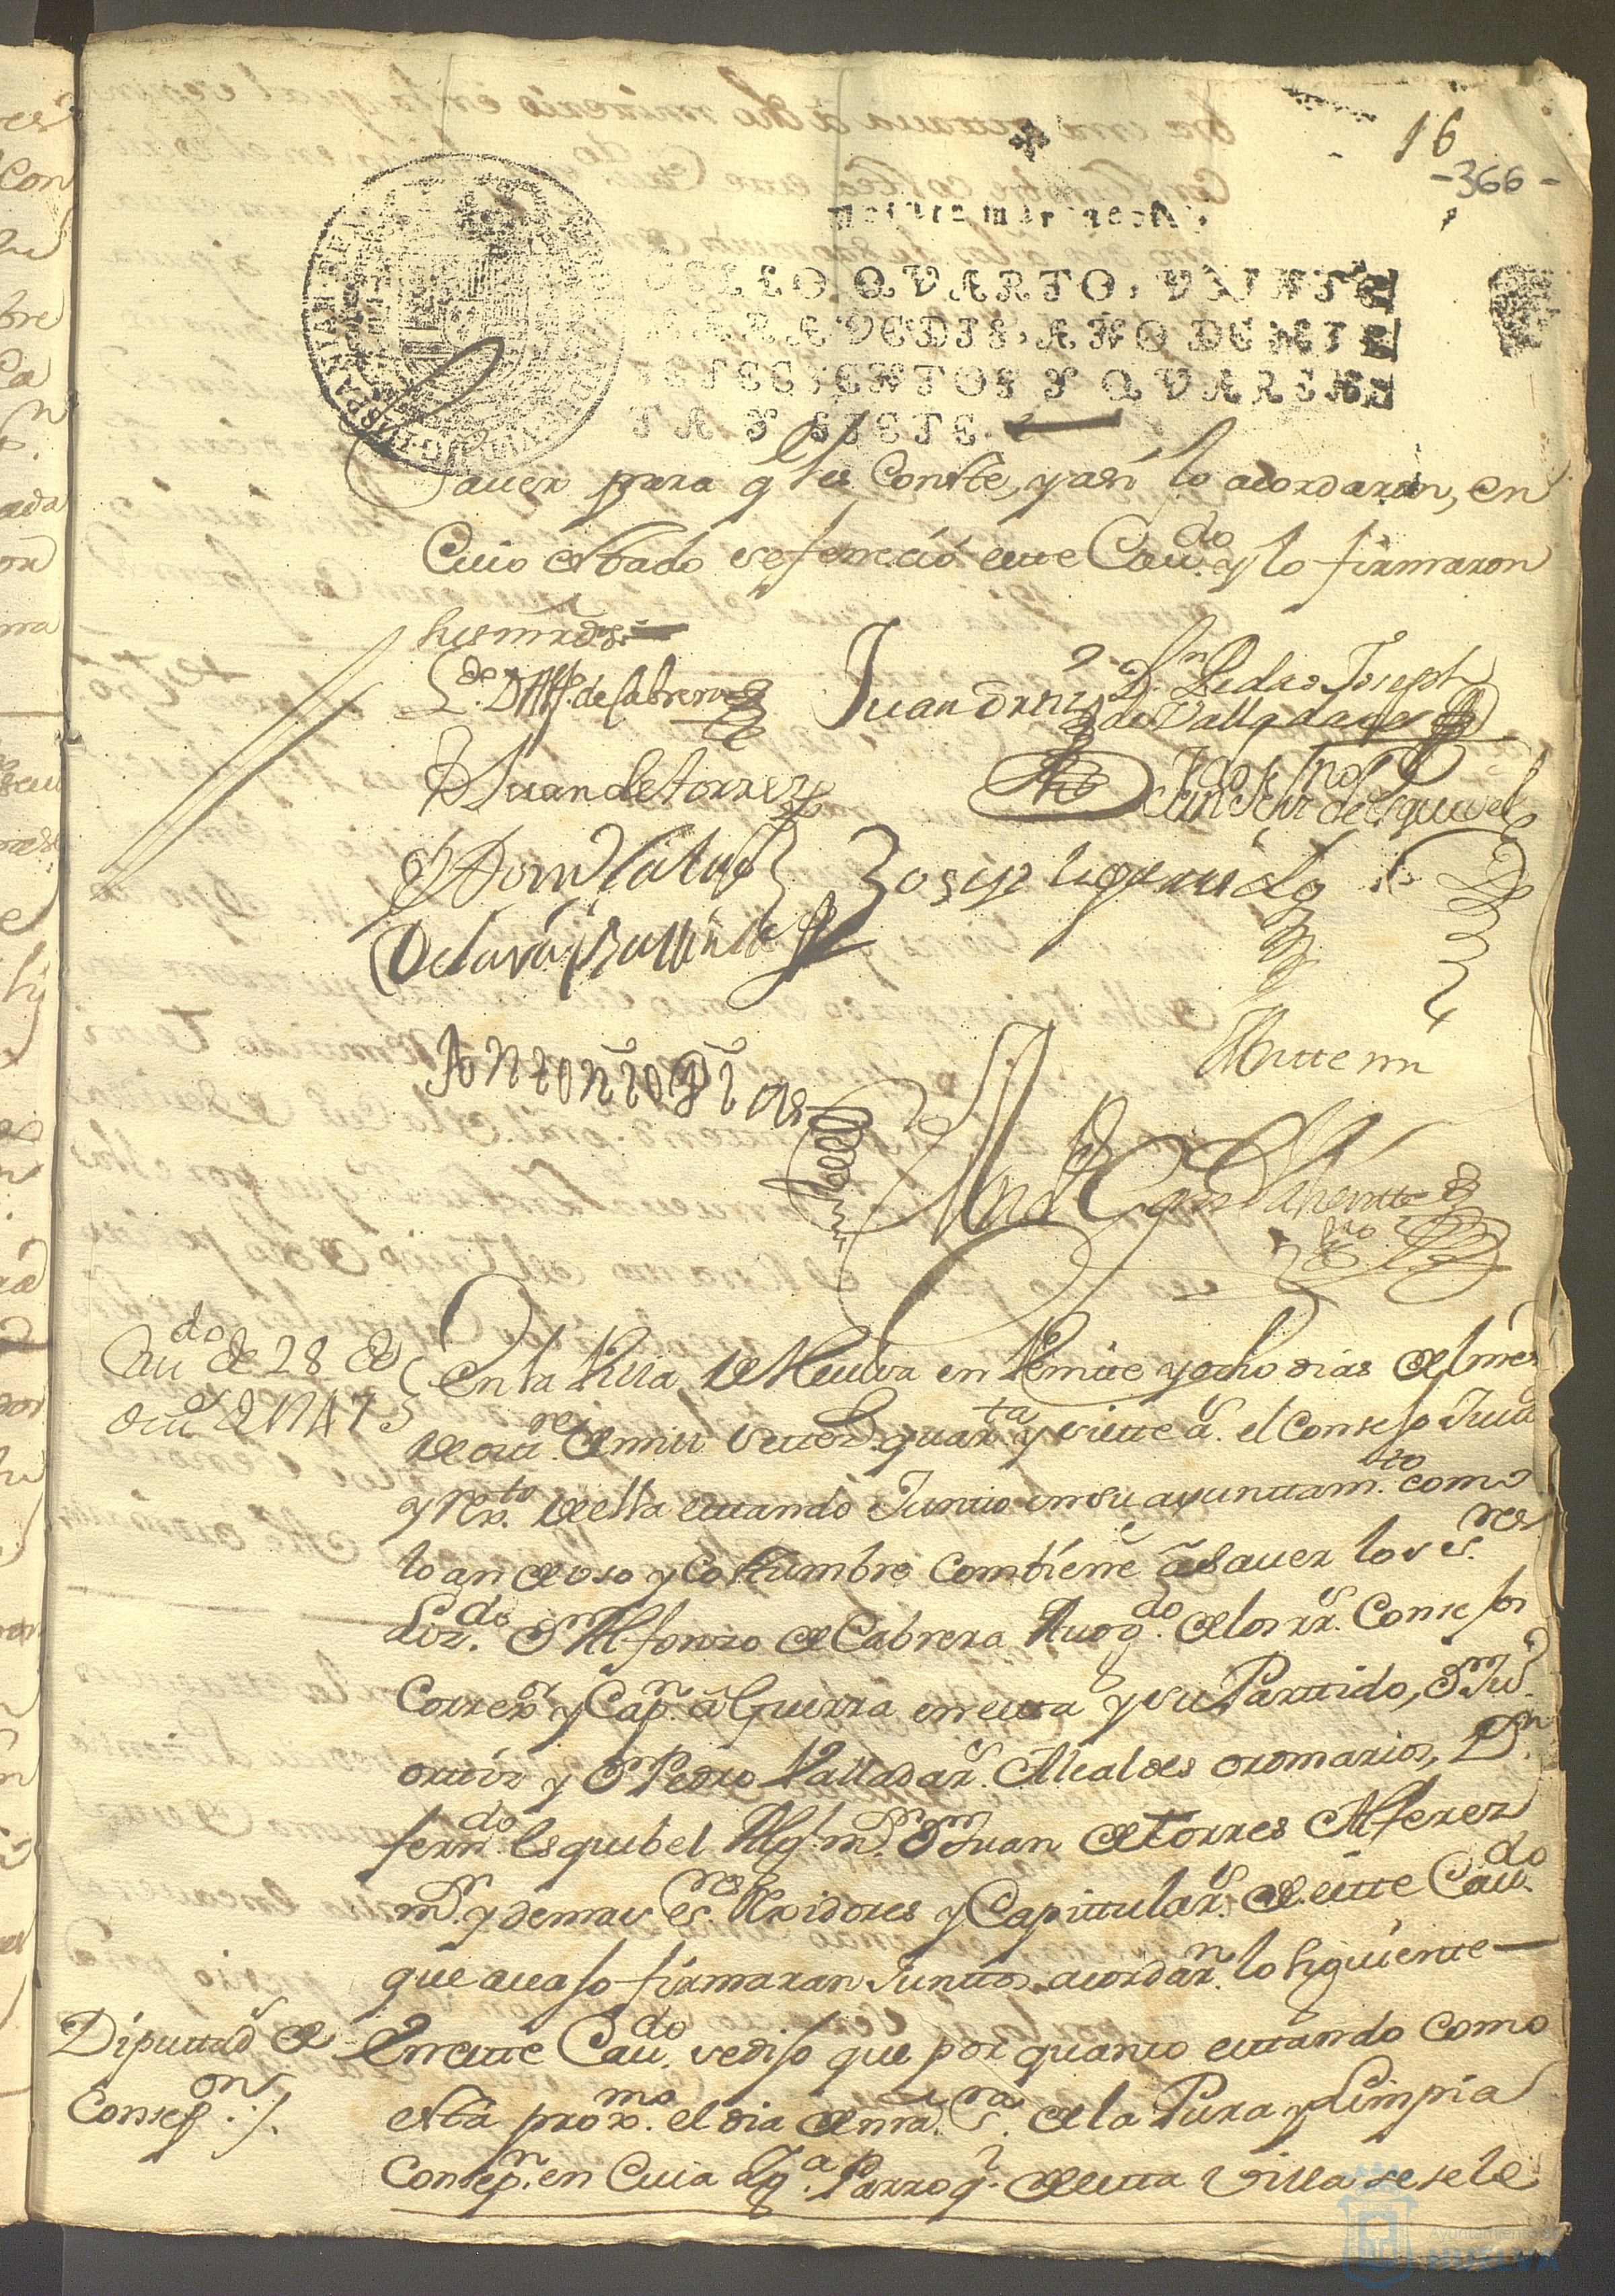 16
-366-
veinte maravedis.
SELLO QVARTO, VEINTE
MARAVEDIS, AÑO DE MIL
SETECIENTOS Y QVAREN-
TA Y SIETE.
Sauer para q les Conste, y asi lo acordaron, en
Cuio estado se feneció este Cau.do y lo firmaron
sus mrds.
L.do D. Alf.o de Cabrera
Juan Ortiz
D.n Pedro Joseph
de Valladares
Juan de torres
de Esquivel
Antonio Dias
Antte mi
Cau.do de 28 de
oct.e de 1747
En la Villa de Huelva en Veinte y ocho dias del mes
de oct.re de mill setez.s quar.ta y siete a.s el Consejo Just.a
y Rex.to de ella estando Junto en su ayuntam.to como
lo an de uso y costumbre combiene a sauer los s.res
Liz.do D.n Alfonzo de Cabrera Auog.do de los R.s Consejos
Correx.or y Cap.n a Guerra en esta y su Partido, D.n Ju.o
ortiz y D.n Pedro Valladar.s Alcaldes ordinarios, D.n
fern.do Esquibel Alg.l m.or D.n Juan de torres Alferez
m.or y demas s.res Rexidores y Capitular.s de este Cau.do
que auajo firmaran Juntos acordar.n lo siguiente
Diputtad.s de
Consep.on
En este Cau.do se dijo que por quanto estando como
esta prox.mo el dia de nra. s.ra de la Pura y Limpia
Consep.n en Cuia Ig.a Parroq.l de esta Villa se sele
Ayuntamiento de
HUELVA